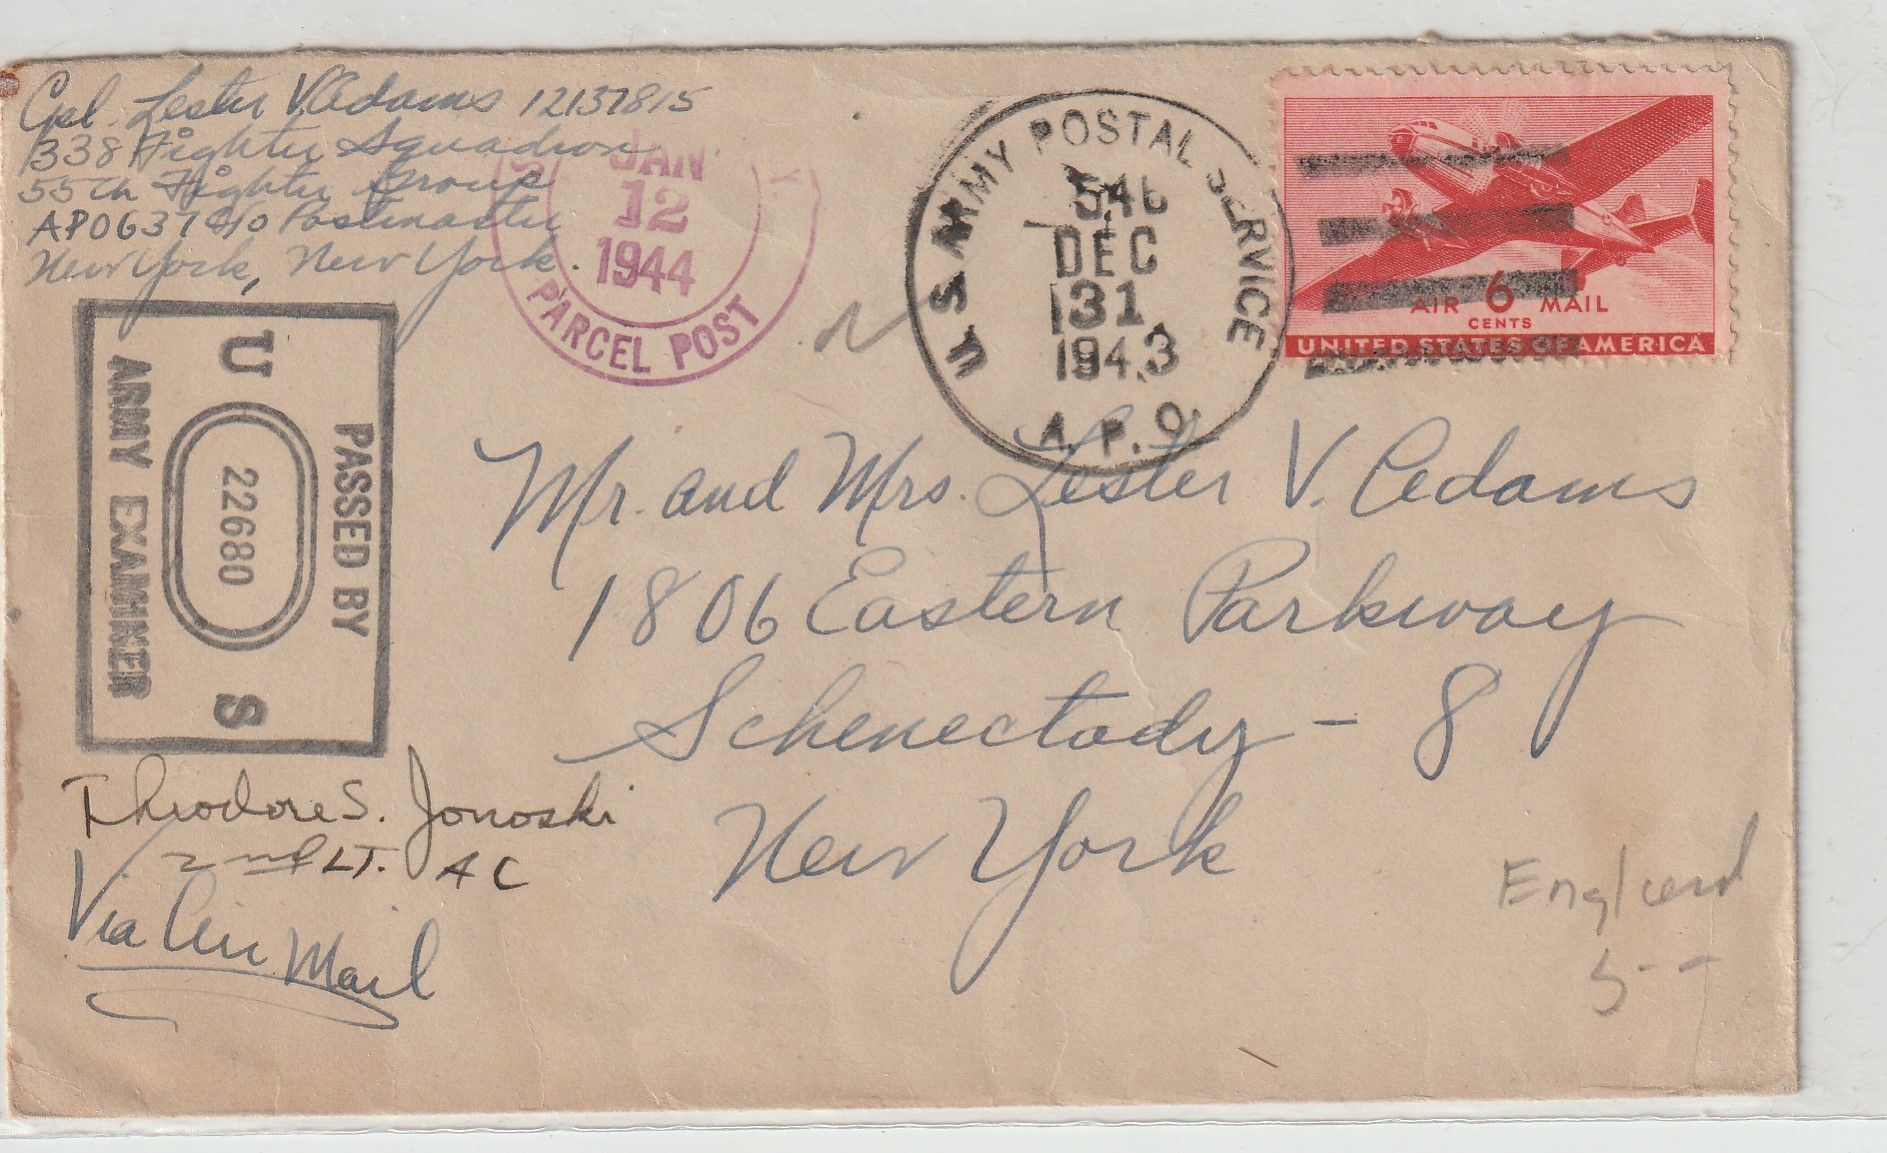 Cpl. Lester V. Adams 12137815
338 Fighter Squadron
55th Fighter Group
APO 637 c/o Postmaster
New York, New York.
JAN
12
1944
PARCEL POST
U.S. ARMY POSTAL SERVICE
546
DEC
31
1943
A.P.O.
AIR 6 MAIL
CENTS
UNITED STATES OF AMERICA
U S
PASSED BY
22680
ARMY EXAMINER
Mr. and Mrs. Lester V. Adams
1806 Eastern Parkway
Schenectady - 8
New York
Theodore S. Jonoski
2nd LT. AC
Via Air Mail
England
5--